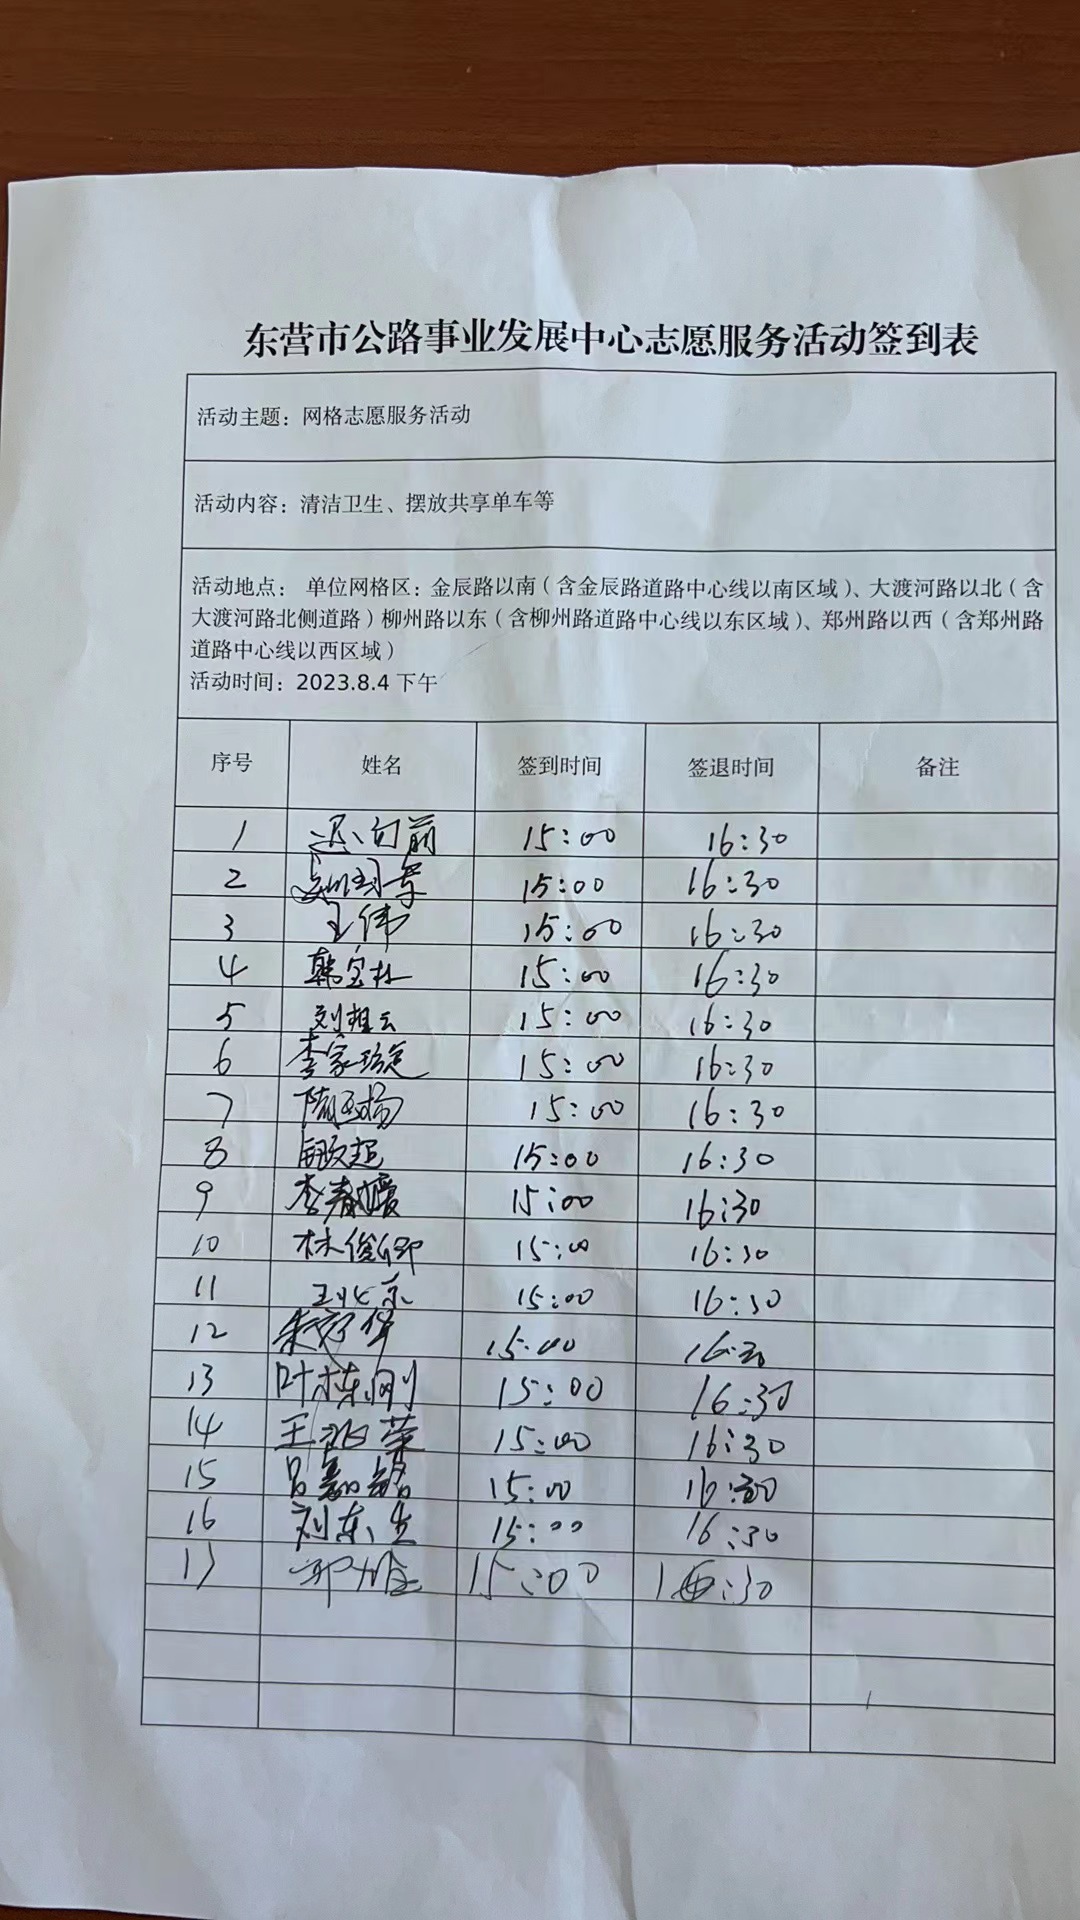 东营市公路事业发展中心志愿服务活动签到表
活动主题：网格志愿服务活动
活动内容：清洁卫生、摆放共享单车等
活动地点： 单位网格区：金辰路以南（含金辰路道路中心线以南区域）、大渡河路以北（含
大渡河路北侧道路）柳州路以东（含柳州路道路中心线以东区域）、郑州路以西（含郑州路
道路中心线以西区域）
活动时间：2023.8.4 下午
序号 姓名 签到时间 签退时间 备注
1 迟向前 15:00 16:30
2 15:00 16:30
3 王伟 15:00 16:30
4 韩宝 15:00 16:30
5 刘 云 15:00 16:30
6 李家 15:00 16:30
7 15:00 16:30
8 超 15:00 16:30
9 李春 15:00 16:30
10 林俊卿 15:00 16:30
11 王 15:00 16:30
12 朱 15:00 16:30
13 叶栋刚 15:00 16:30
14 王 荣 15:00 16:30
15 吕嘉铭 15:00 16:30
16 刘东生 15:00 16:30
17 15:00 16:30